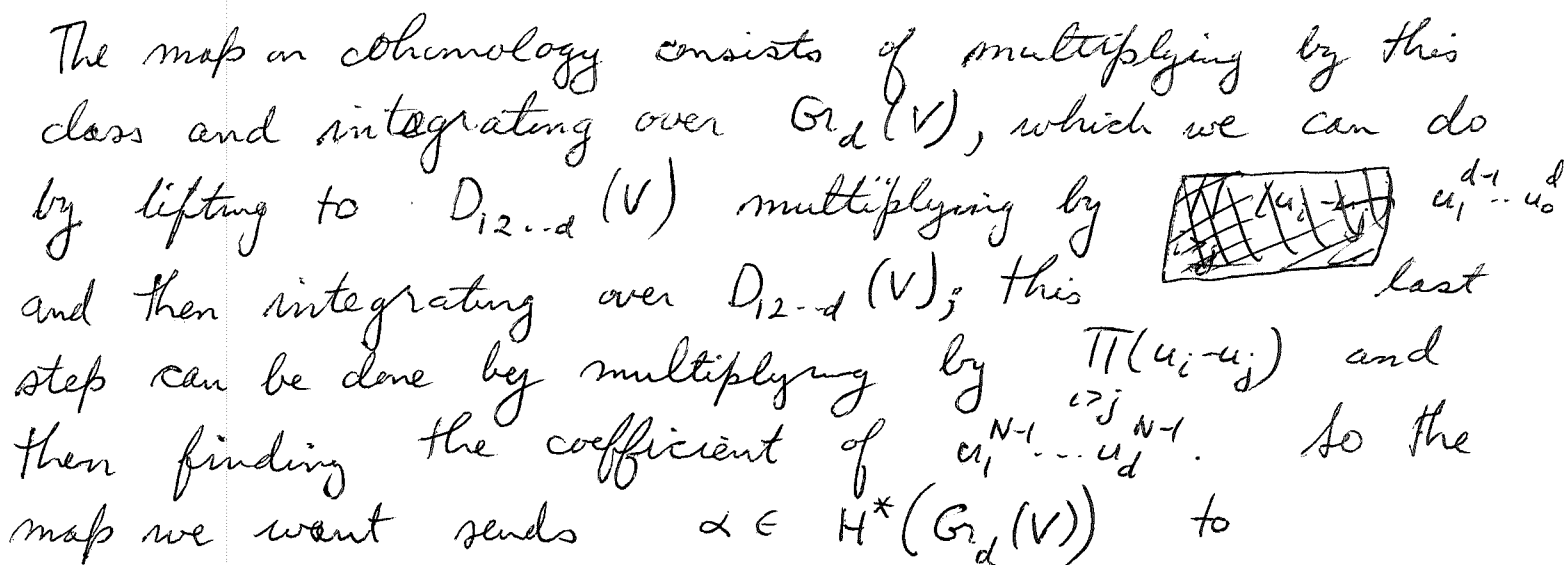 The map on cohomology consists of multiplying by this
class and integrating over Gr_d(V), which we can do
by lifting to D_{12..d}(V) multiplying by u_1^{d-1}..u_d^0
and then integrating over D_{12--d}(V); this last
step can be done by multiplying by ∏_{i>j}(u_i-u_j) and
then finding the coefficient of u_1^{N-1}...u_d^{N-1}. So the
map we want sends α ∈ H^*(Gr_d(V)) to